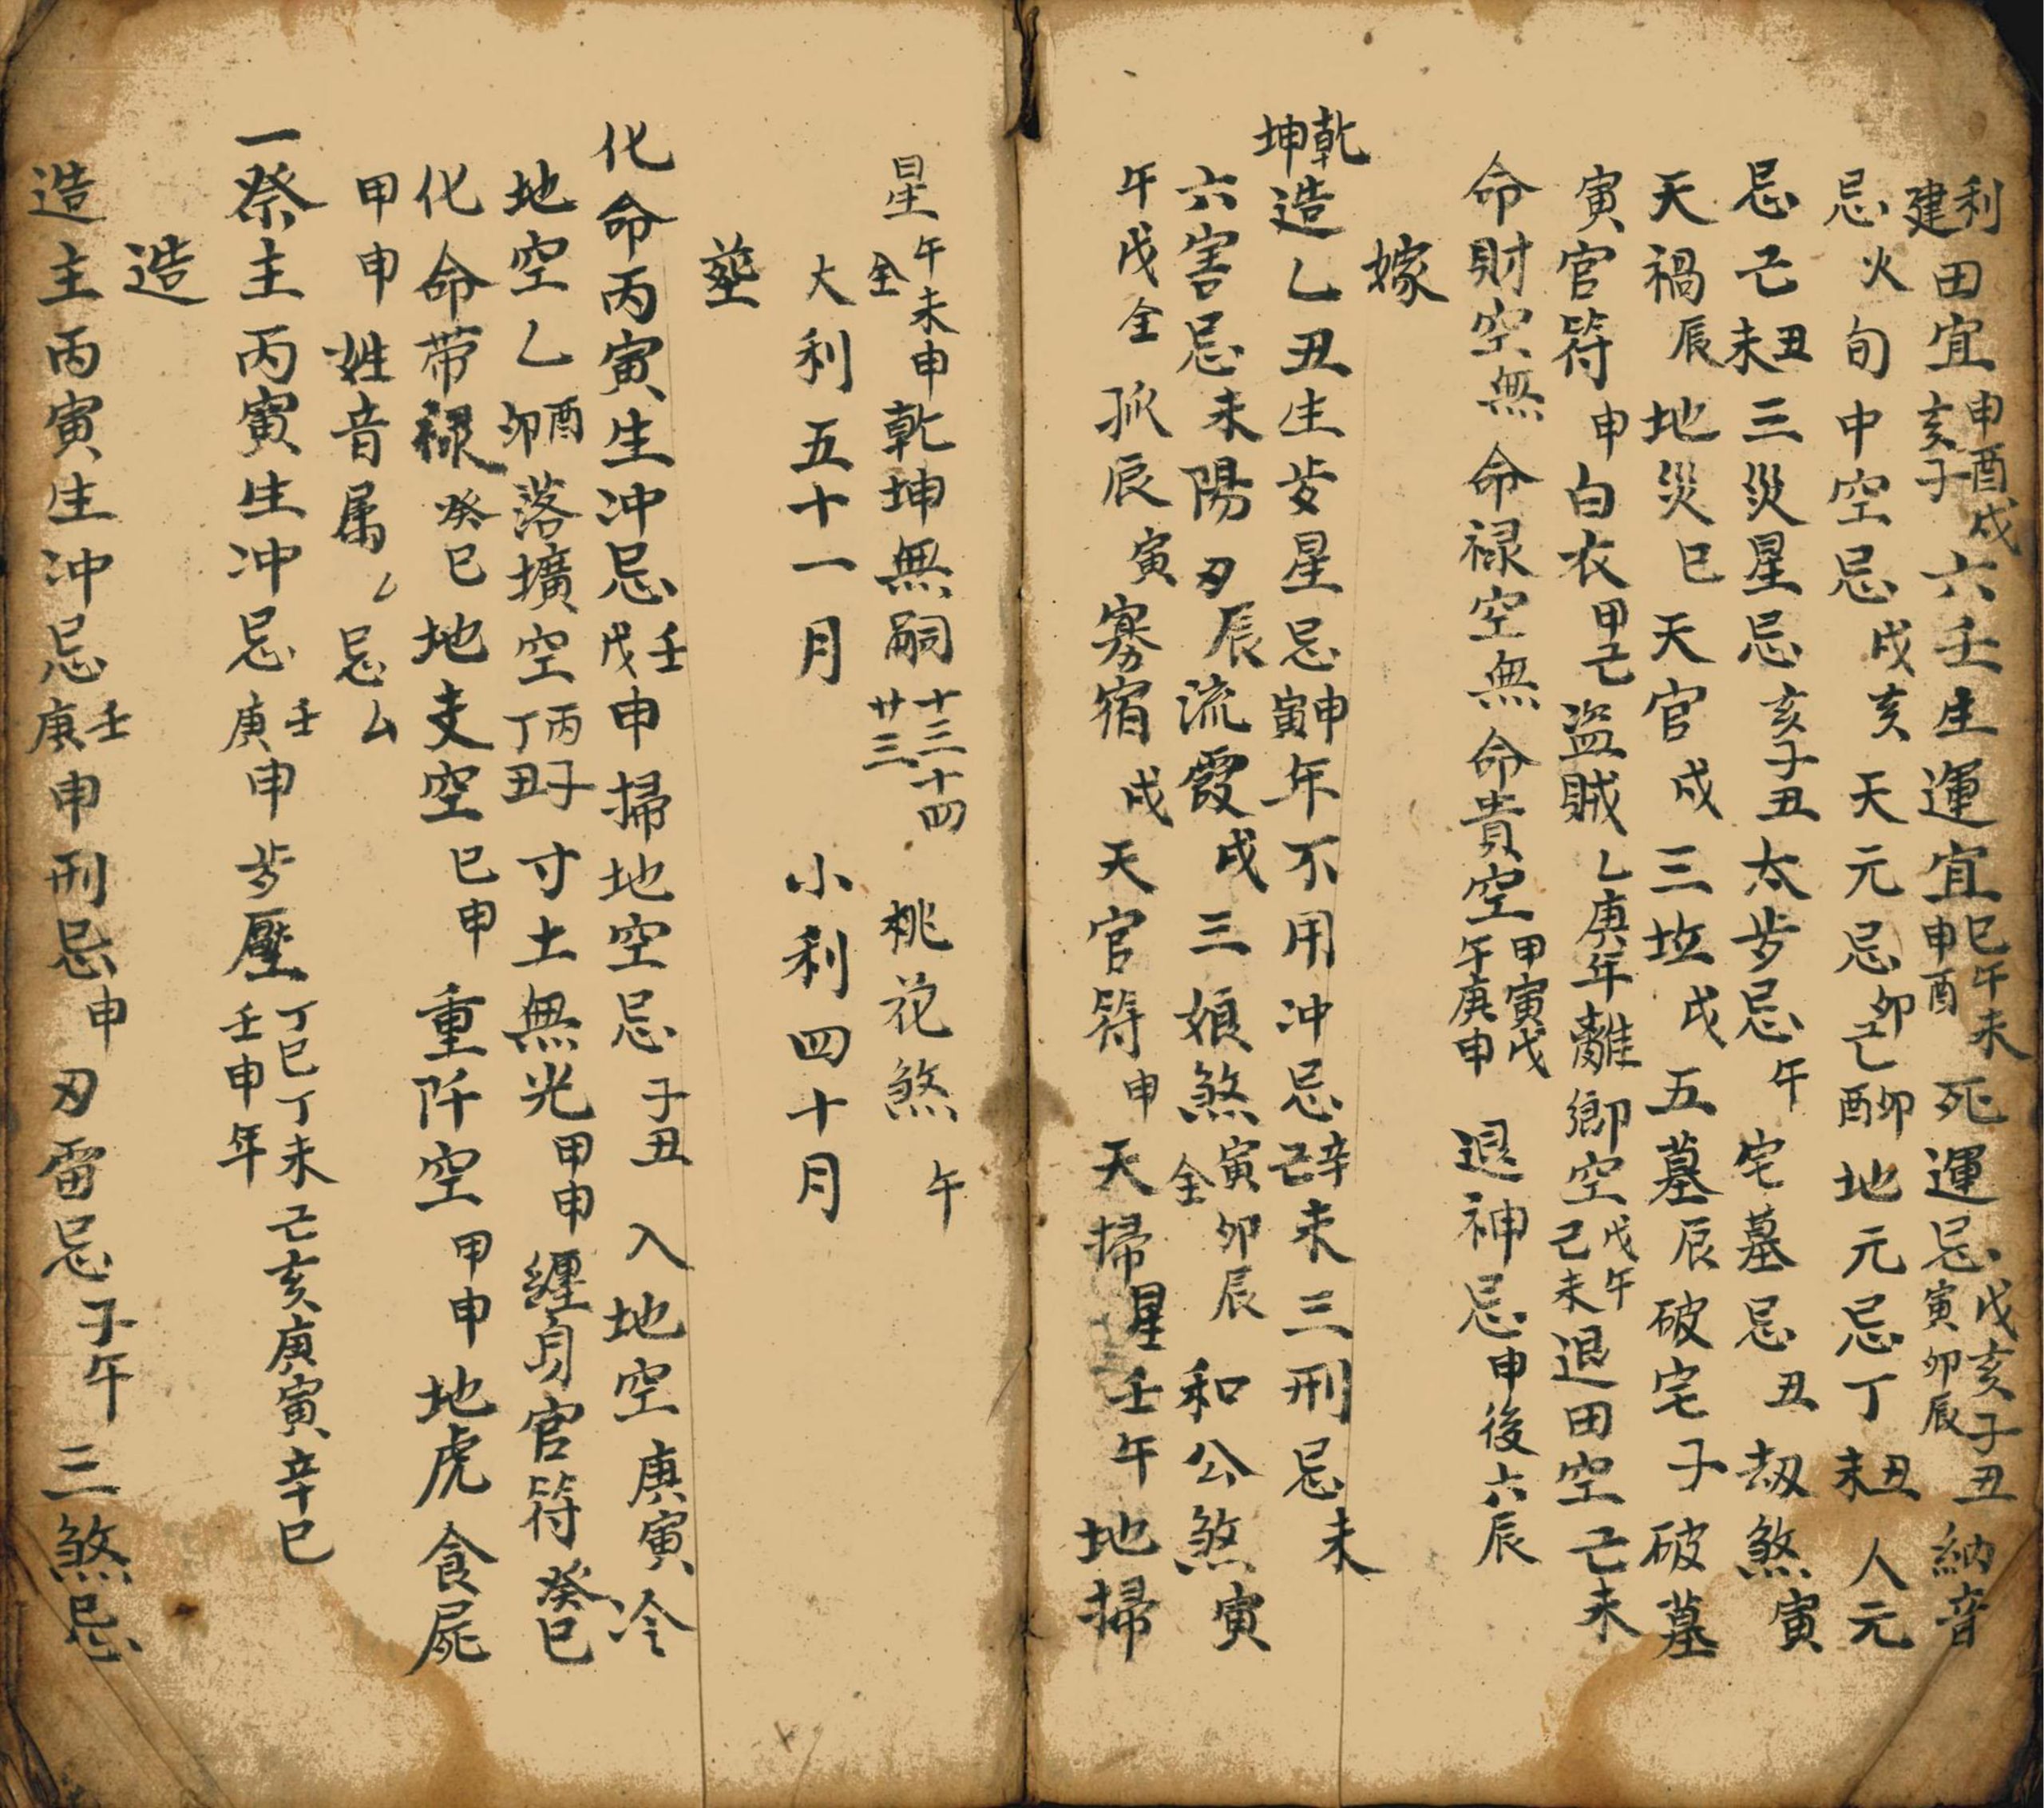 利建田宜申酉戌亥子六壬生運宜巳午未申酉死運忌戌亥子丑寅卯辰納音
忌火旬中空忌戌亥天元忌卯己酉卯地元忌丁未丑人元
忌己未丑三災星忌亥子丑太歩忌午宅墓忌丑劫煞寅
天禍辰地災巳天官戌三坵戌五墓辰破宅子破墓
寅官符申白衣甲己盜賊乙庚年離鄉空戊午己未退田空己未
命財空無命祿空無命貴空甲寅戊午庚申退神忌申後六辰
嫁
乾坤造乙丑生歩星忌申寅年不用冲忌辛己未三刑忌未
六害忌未陽刃辰流霞戌三娘煞寅卯辰全和公煞寅
午戌全孤辰寅寡宿戌天官符申天掃星壬午地掃
星午未申全乾坤無嗣十三三十四廿三桃花煞午
大利五十一月 小利四十月
葬
化命丙寅生冲忌壬戊申掃地空忌子丑入地空庚寅冷
地空乙酉卯落壙空丙子丁丑寸土無光甲申纏身官符癸巳
化命带祿癸巳地支空巳申重阡空甲申地虎食屍
甲申姓音属厶忌厶
一祭主丙寅生冲忌壬庚申歩壓丁巳丁未己亥庚寅辛巳壬申年
造
造主丙寅生冲忌壬庚申刑忌申刃雷忌子午三煞忌